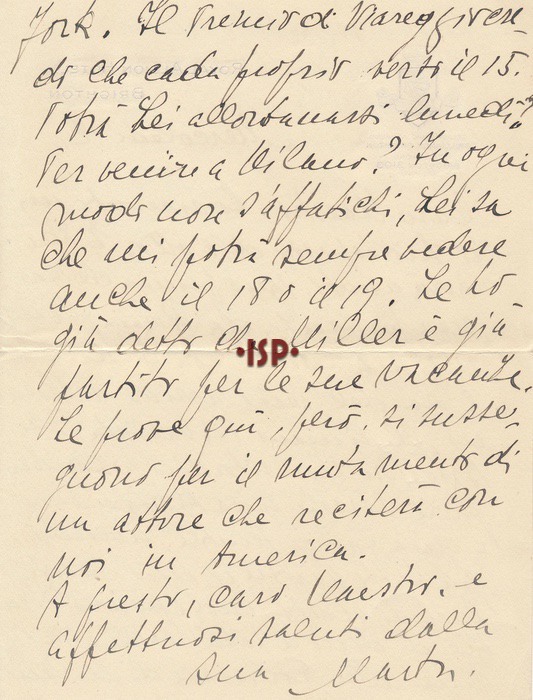 York. Il Premio di Viareggio cre-
do che cada proprio verso il 15.
Potrà Lei allontanarsi lunedì?
Per venire a Milano? In ogni
modo non s'affatichi, Lei sa
che mi potrà sempre vedere
anche il 18 o il 19. Le ho
già detto che Miller è già
partito per le sue vacanze.
Le prove qui, però, si susse-
guono per il mutamento di
un attore che reciterà con
noi in America.
A presto, caro Maestro, e
affettuosi saluti dalla
sua Marta.
·ISP·